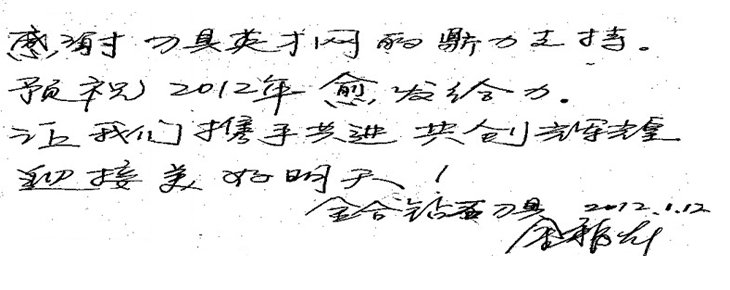 感谢刀具英才网的鼎力支持。
预祝2012年愈发给力。
让我们携手共进 共创辉煌
迎接美好明天！
金合钻石刀具 2012.1.12